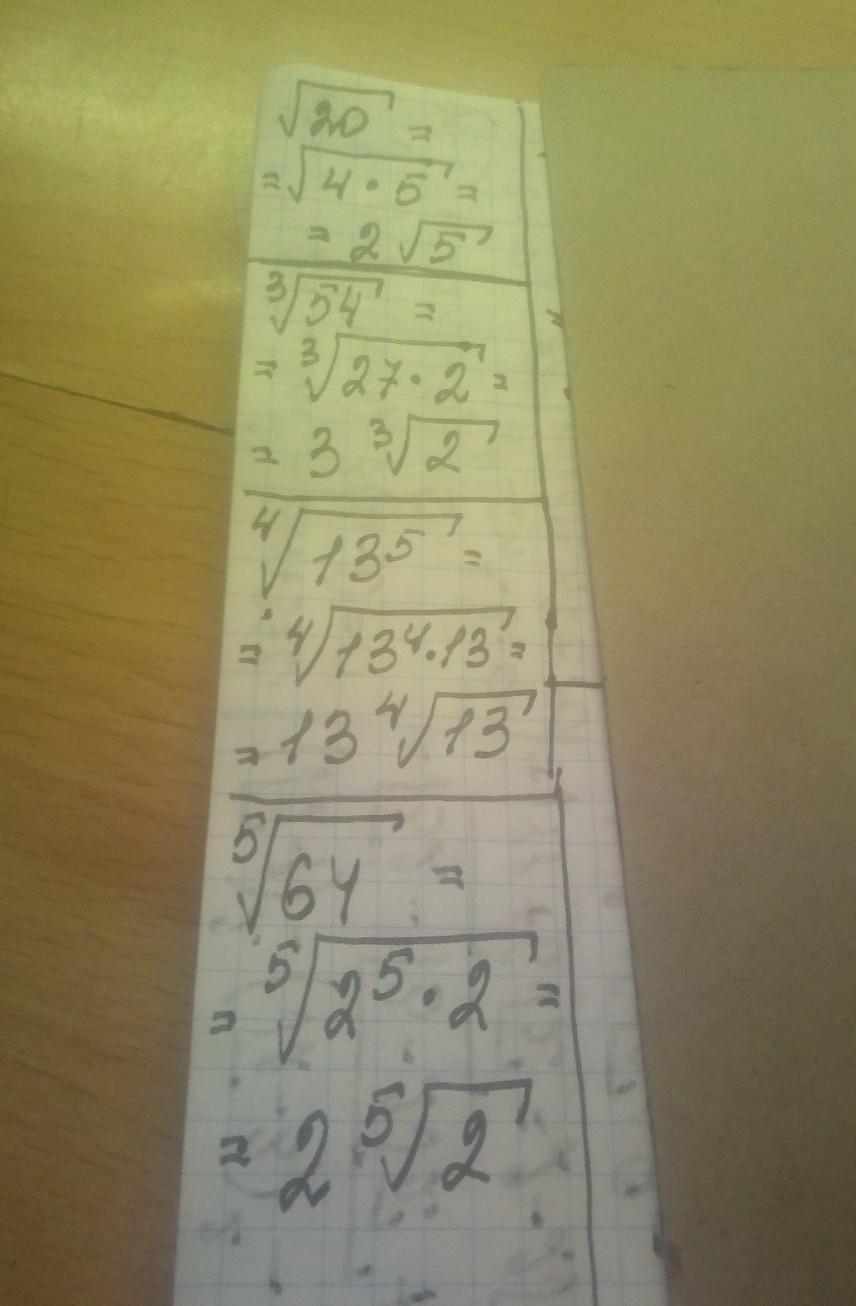 √20 =
= √4·5 =
= 2 √5
³√54 =
= ³√27·2 =
= 3 ³√2
⁴√13⁵ =
= ⁴√13⁴·13 =
= 13 ⁴√13
⁵√64 =
= ⁵√2⁵·2 =
= 2 ⁵√2